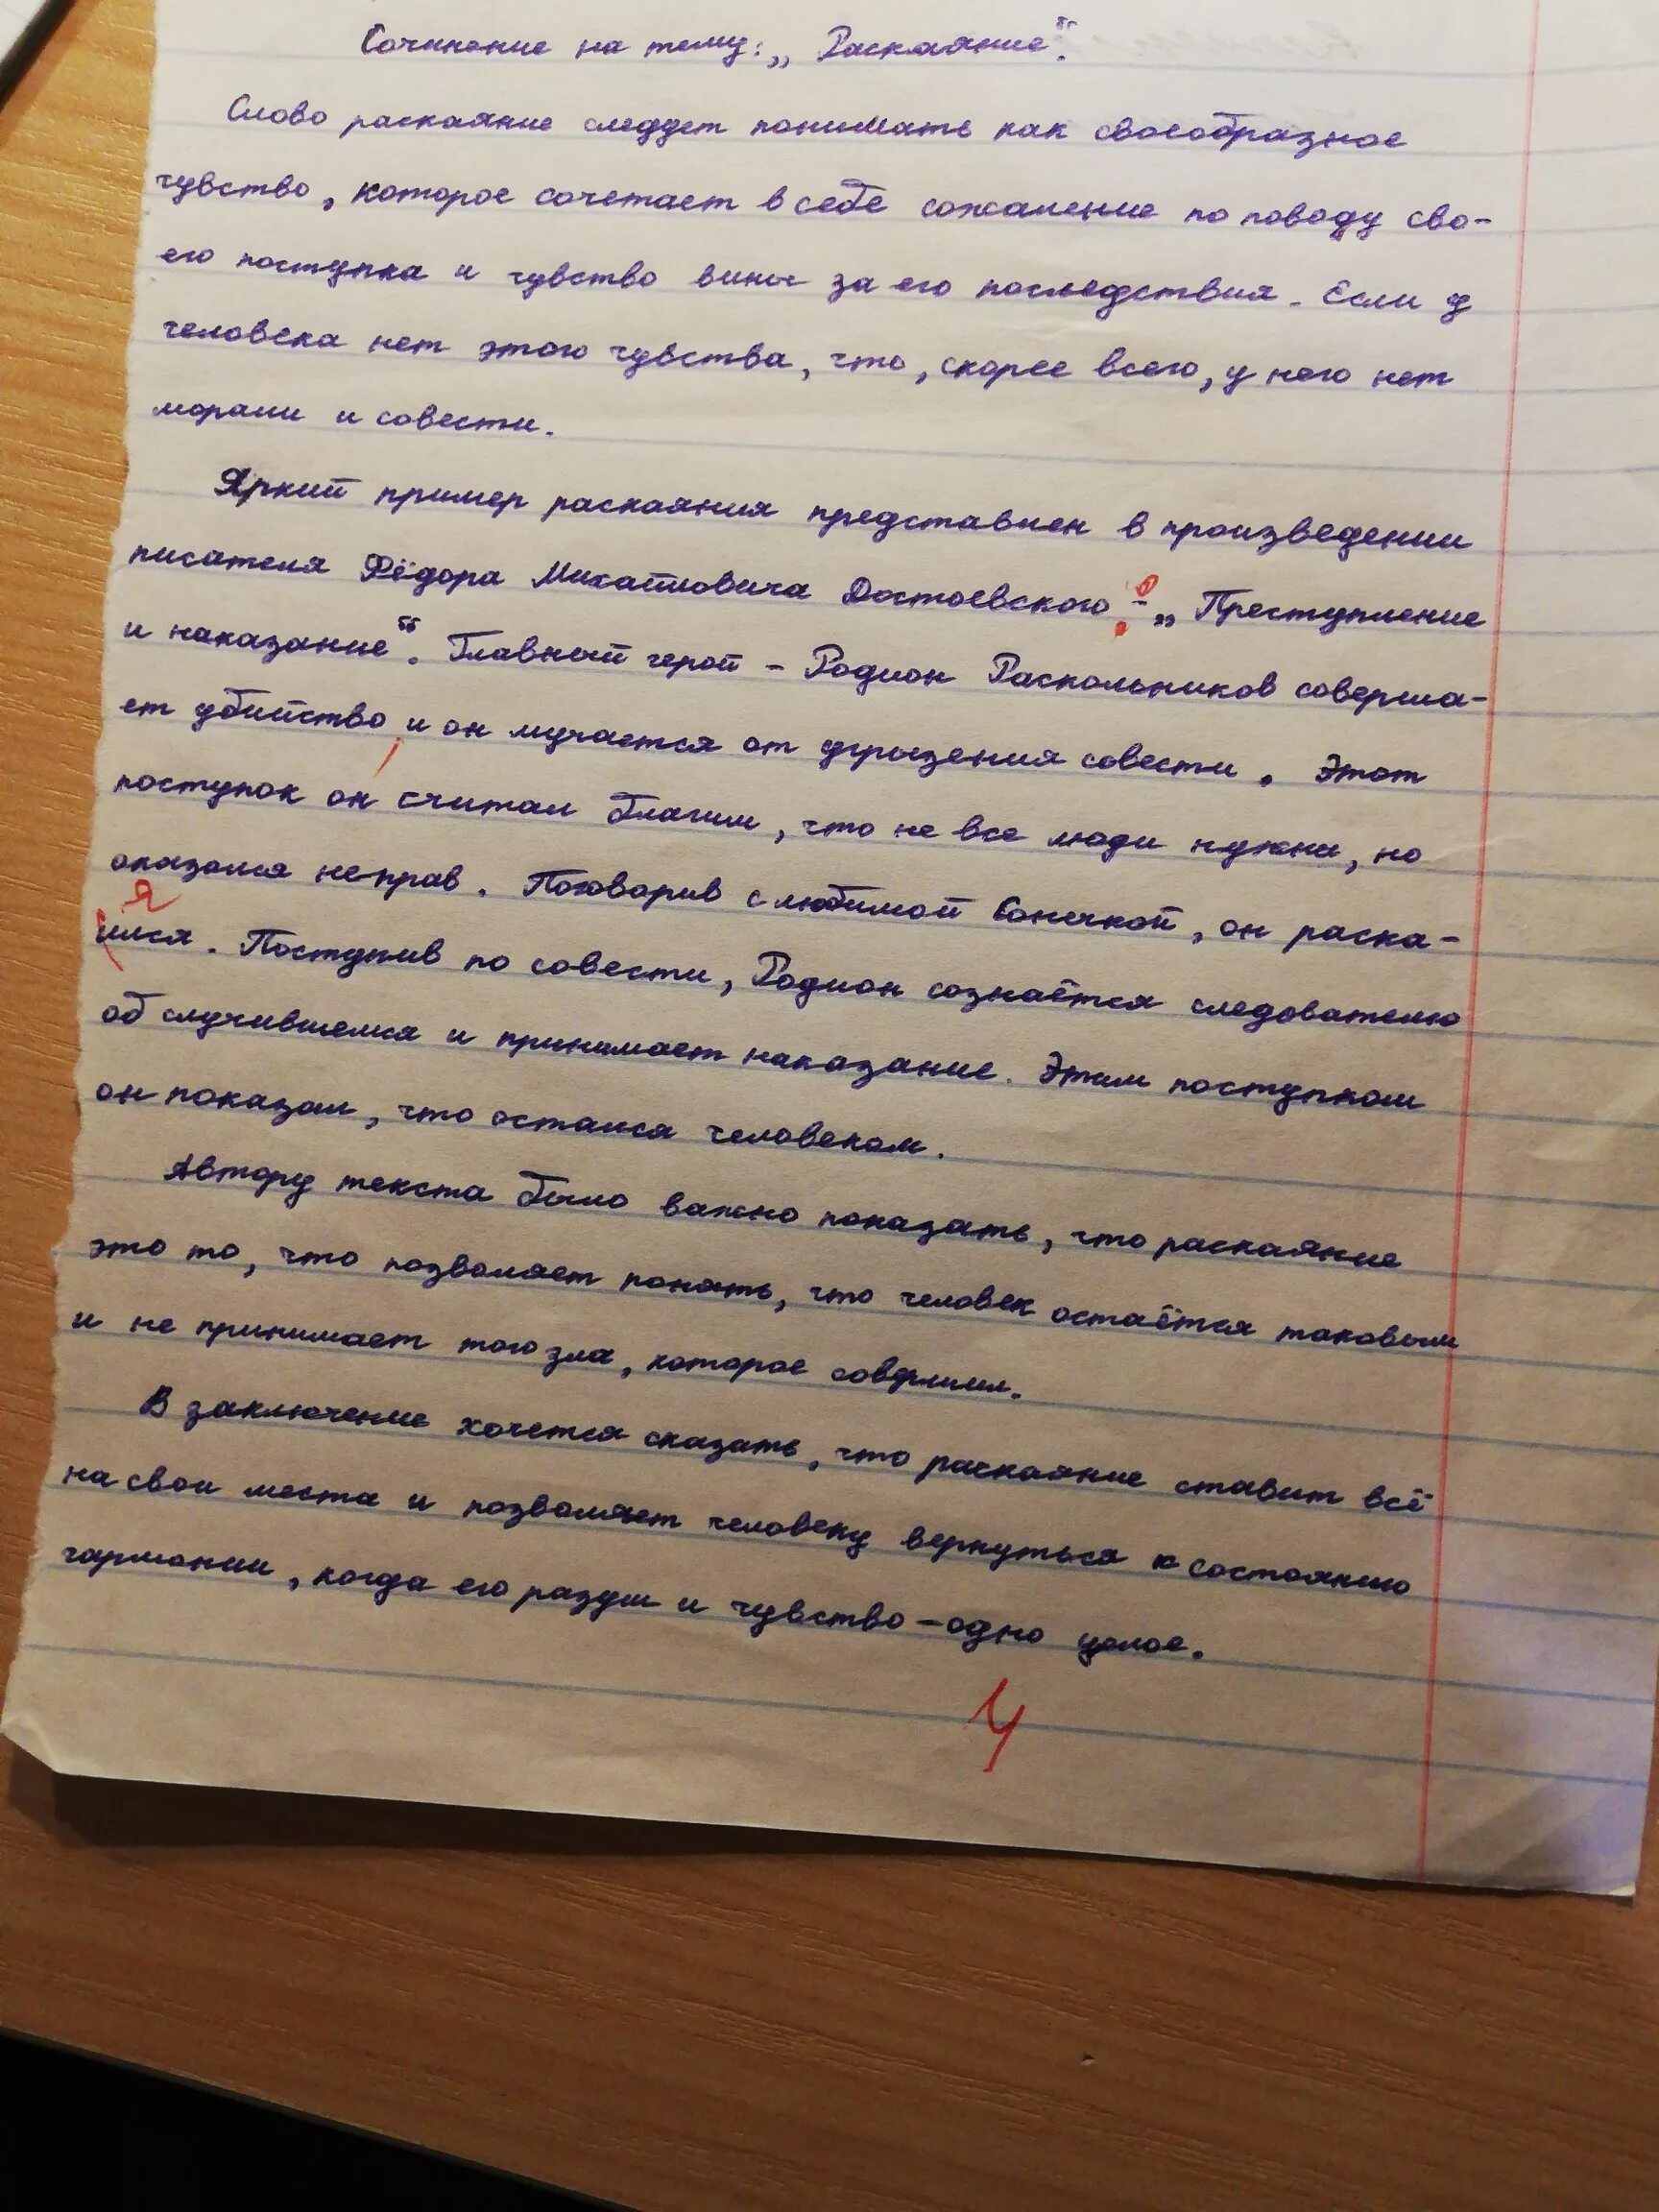 Сочинение на тему: „Раскаяние“.
Слово раскаяние следует понимать как своеобразное
чувство, которое сочетает в себе сожаление по поводу сво-
его поступка и чувство вины за его последствия. Если у
человека нет этого чувства, что, скорее всего, у него нет
морали и совести.
Яркий пример раскаяния представлен в произведении
писателя Фёдора Михайловича Достоевского - „Преступление
и наказание“. Главный герой - Родион Раскольников соверша-
ет убийство и он мучается от угрызения совести. Этот
поступок он считал благим, что не все люди нужны, но
оказался неправ. Поговорив с любимой Сонечкой, он раска-
я
ился. Поступив по совести, Родион сознаётся следователю
об случившемся и принимает наказание. Этим поступком
он показал, что остался человеком.
Автору текста было важно показать, что раскаяние
это то, что позволяет понять, что человек остаётся таковым
и не принимает того зла, которое совершил.
В заключение хочется сказать, что раскаяние ставит всё
на свои места и позволяет человеку вернуться к состоянию
гармонии, когда его разум и чувство - одно целое.
4